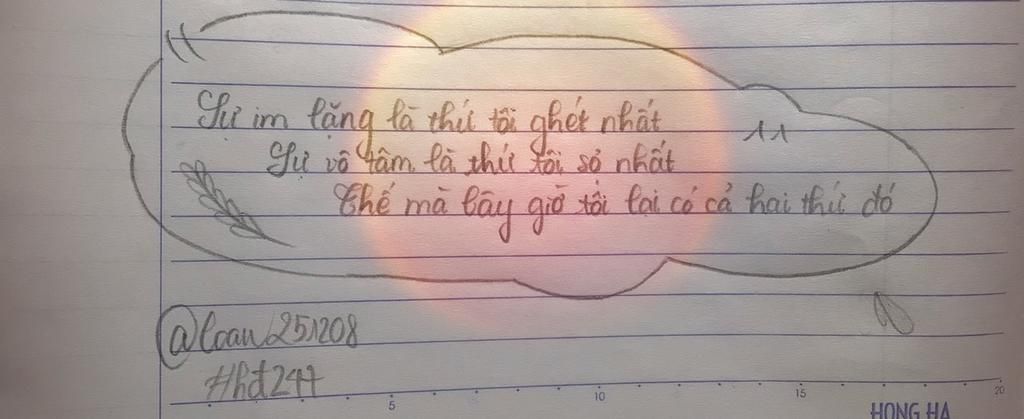 Sự im lặng là thứ tôi ghét nhất
Sự vô tâm là thứ tôi sợ nhất
Thế mà bây giờ tôi lại có cả hai thứ đó
@loan251208
#hđ247
5 10 15 20
HONG HA